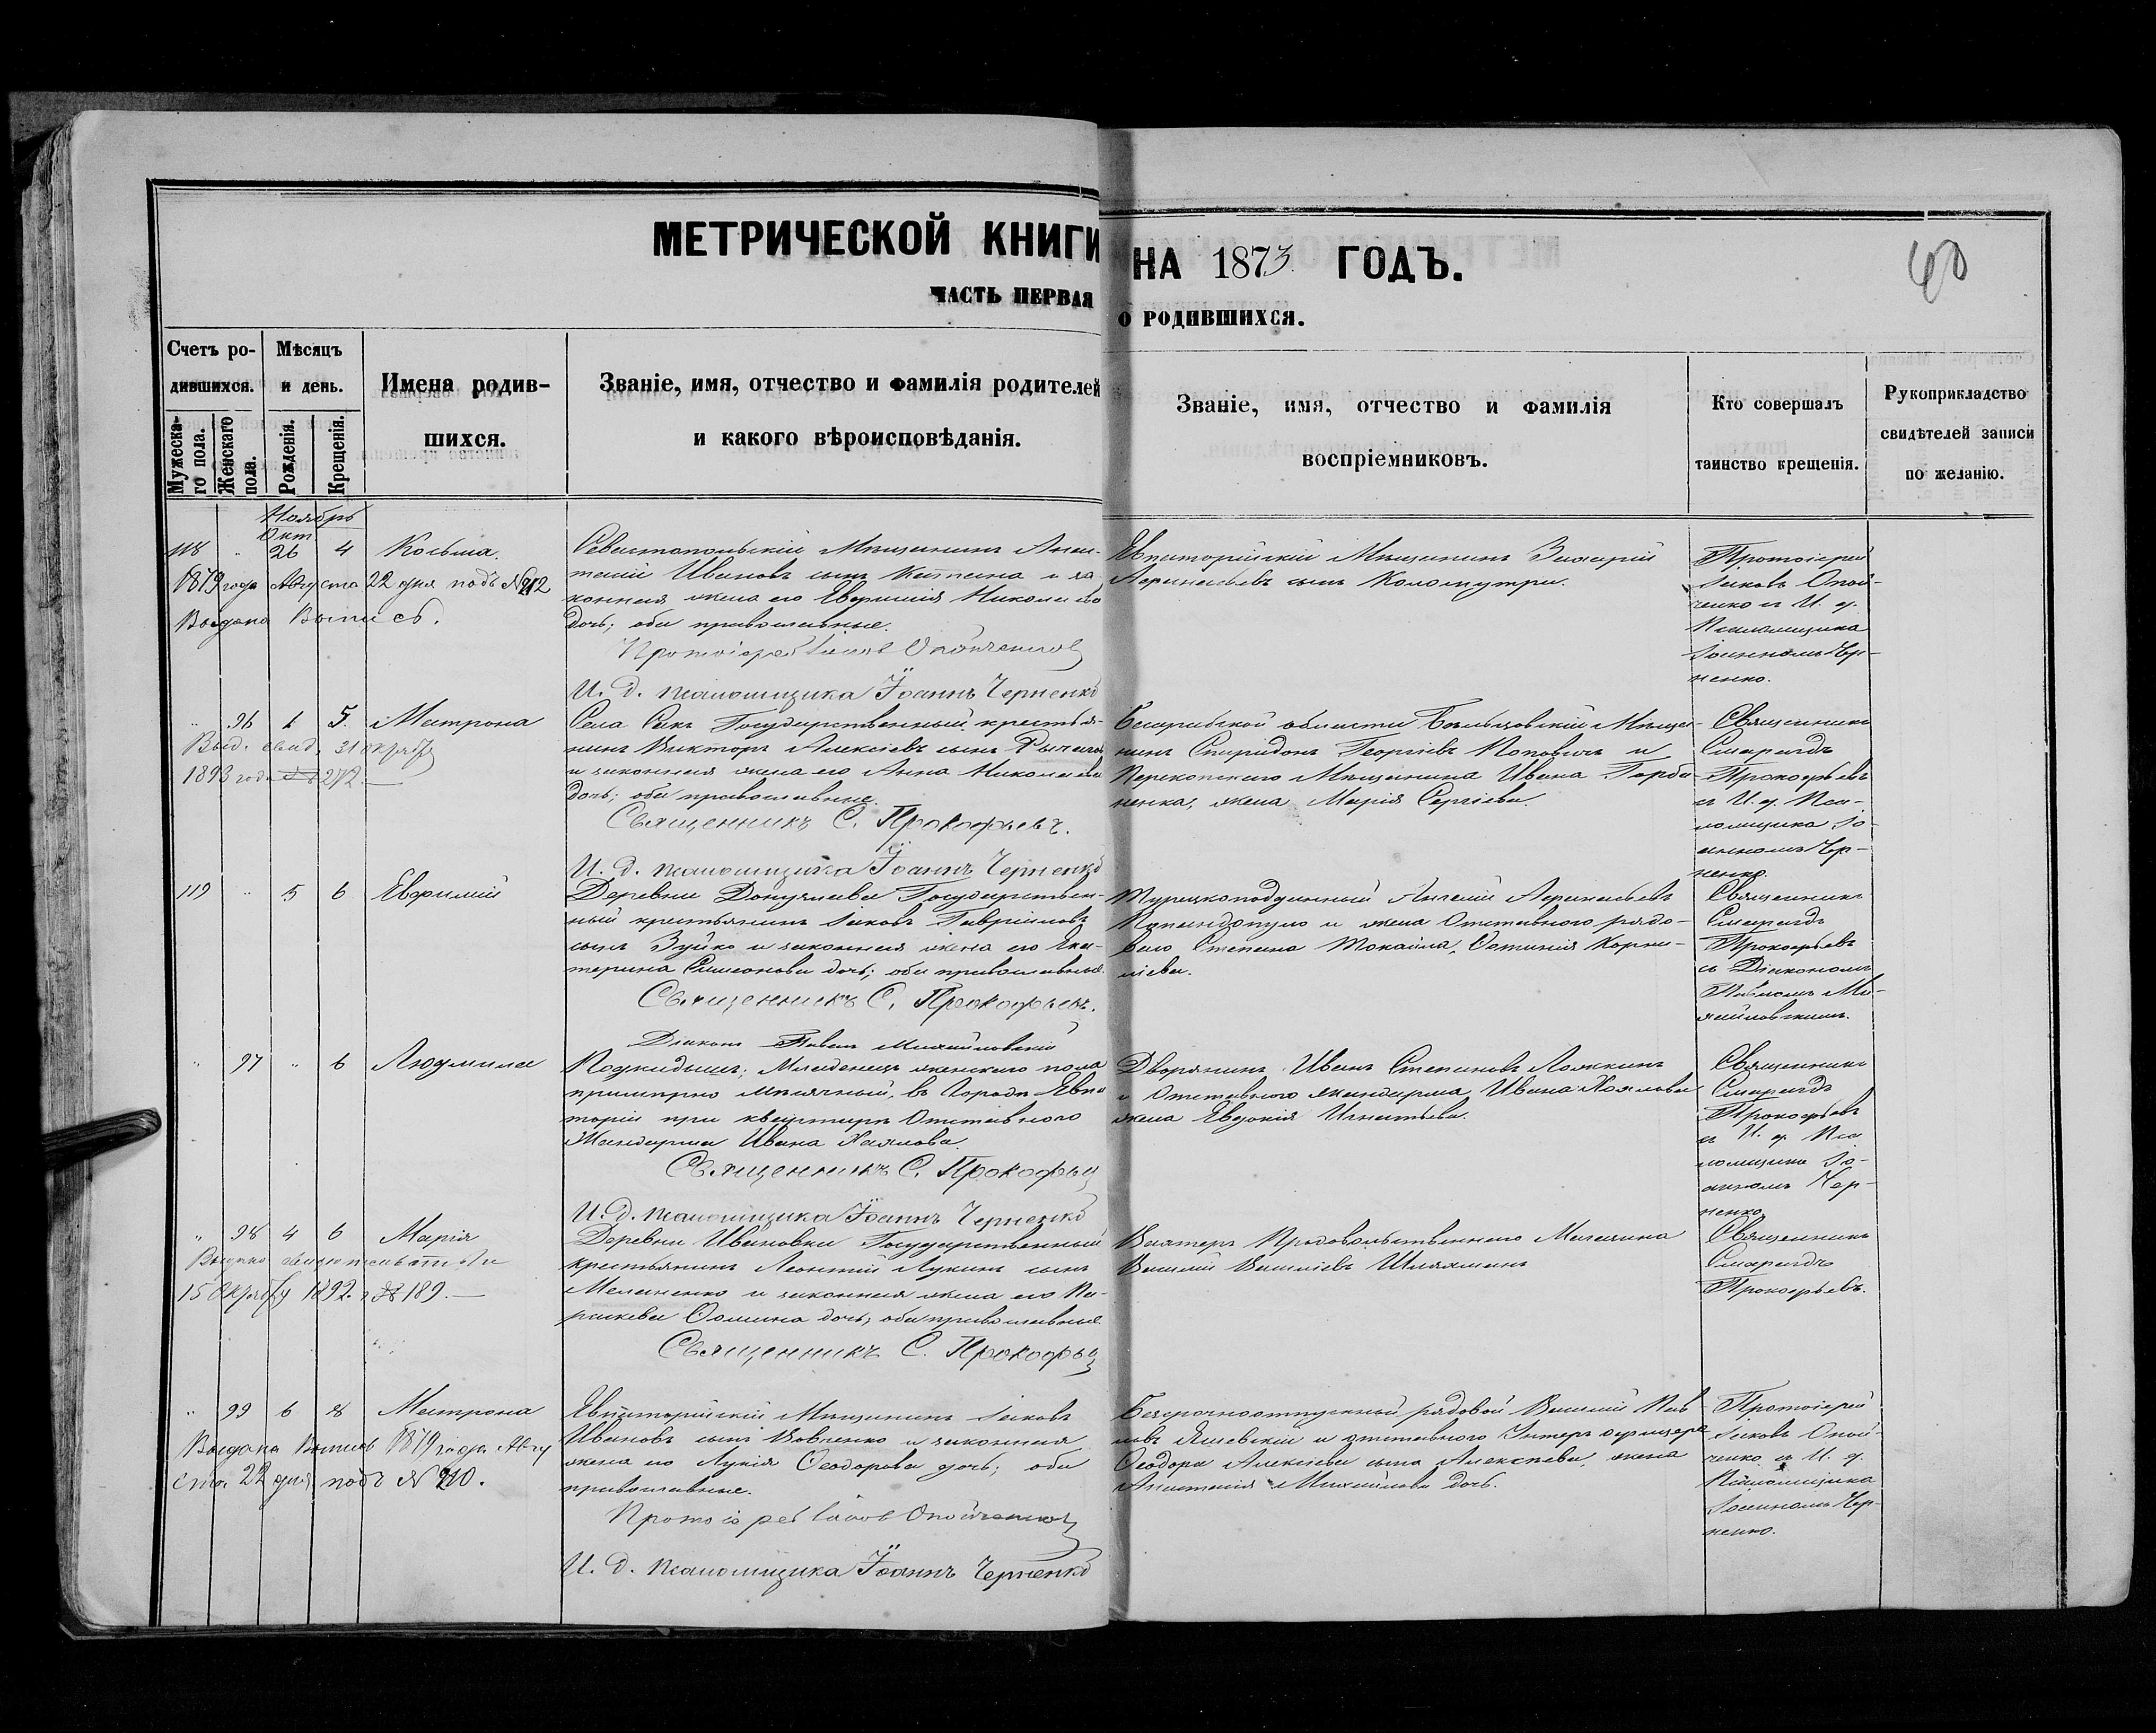 МЕТРИЧЕСКОЙ КНИГИ НА 1873 ГОДЪ.
60
ЧАСТЬ ПЕРВАЯ О РОДИВШИХСЯ.
Счетъ ро-
дившихся.
Мужеска-
го пола.
Женскаго
пола.
Мѣсяцъ
и день.
Рожденія.
Крещенія.
Имена родив-
шихся.
Званіе, имя, отчество и фамилія родителей
и какого вѣроисповѣданія.
Званіе, имя, отчество и фамилія
воспріемниковъ.
Кто совершалъ
таинство крещенія.
Рукоприкладство
свидѣтелей записи
по желанію.
Ноябрь
Окт
118 " 26 4 Косьма.
1879 года Августа 22 дня подъ № 212
Выдана Выпись.
Севастопольскій Мѣщанинъ
Ивановъ сынъ и за
конная жена его Евфимія Николаева
дочь; оба православные.
Протоіерей Іаковъ
И. д. псаломщика Іоаннъ Черненко
Евпаторійскій Мѣщанинъ Захарій
сынъ
Протоіерей
Іаковъ Опой-
ченко и И. д.
Псаломщика
Іоанномъ Чер-
ненко.
" 96 1 5. Матрона
Выд. свид. 31 октября
1893 года № 272.
Села Сакъ Государственный крестья-
нинъ Викторъ Алексіевъ сынъ
и законная жена его Анна Николаева
дочь; оба православные.
Священникъ С. Прокофьевъ.
И. д. псаломщика Іоаннъ Черненко
Бесарабской области Бѣльцовскій Мѣща-
нинъ Спиридонъ Георгіевъ Поповичъ и
Перекопскаго Мѣщанина Ивана Горба-
ненка, жена Марія Сергіева.
Священникъ
Смарагдъ
Прокофьевъ
и И. д. Пса-
ломщика Іо-
анномъ Чер-
ненко.
119 " 5 6 Евфимій
Деревни Государствен-
ный крестьянинъ Іаковъ Гавріиловъ
сынъ Зуйко и законная жена его Ека-
терина Симеонова дочь; оба православные.
Священникъ С. Прокофьевъ.
Діаконъ Павелъ Михайловскій
Турецкоподданный
и жена Отставного рядо-
ваго Степана Корни-
ліева.
Священникъ
Смарагдъ
Прокофьевъ
съ Діакономъ
Павломъ Ми-
хайловскимъ.
" 97 " 6 Людмила
Подкидышъ; Младенецъ женскаго пола
примѣрно мѣсячный, въ Городѣ Евпа
торіи при квартирѣ Отставного
Жандарма Ивана Хаялова.
Священникъ С. Прокофьевъ
И. д. псаломщика Іоаннъ Черненко
Дворянинъ Иванъ Степановъ Ложкинъ
и Отставного жандарма Ивана Хаялова
жена Евдокія Игнатьева.
Священникъ
Смарагдъ
Прокофьевъ
и И. д. Пса
ломщика Іо-
анномъ Чер-
ненко.
" 98 4 6 Марія
Выдано свидетельство
15 Октября 1892 г. № 189.
Деревни Ивановки Государственный
крестьянинъ Леонтій Лукинъ сынъ
и законная жена его Па-
раскева Фомина дочь; оба православные.
Священникъ С. Прокофьевъ
Вахтеръ Продовольственнаго Магазина
Василій Василіевъ
Священникъ
Смарагдъ
Прокофьевъ.
" 99 6 8 Матрона
Выдана Выпись 1879 года Авгу
ста 22 дня подъ № 210.
Евпаторійскій Мѣщанинъ Іаковъ
Ивановъ сынъ Вовченко и законная
жена его Лукія Феодорова дочь; оба
православные.
Протоіерей Іаковъ
И. д. псаломщика Іоаннъ Черненко
Безсрочноотпускный рядовой Василій Пав
ловъ и отставного Унтеръ офицера
Феодора Алексіева сына Алексѣева, жена
Анастасія Михайлова дочь.
Протоіерей
Іаковъ Опой-
ченко и И. д.
Псаломщика
Іоанномъ Чер-
ненко.